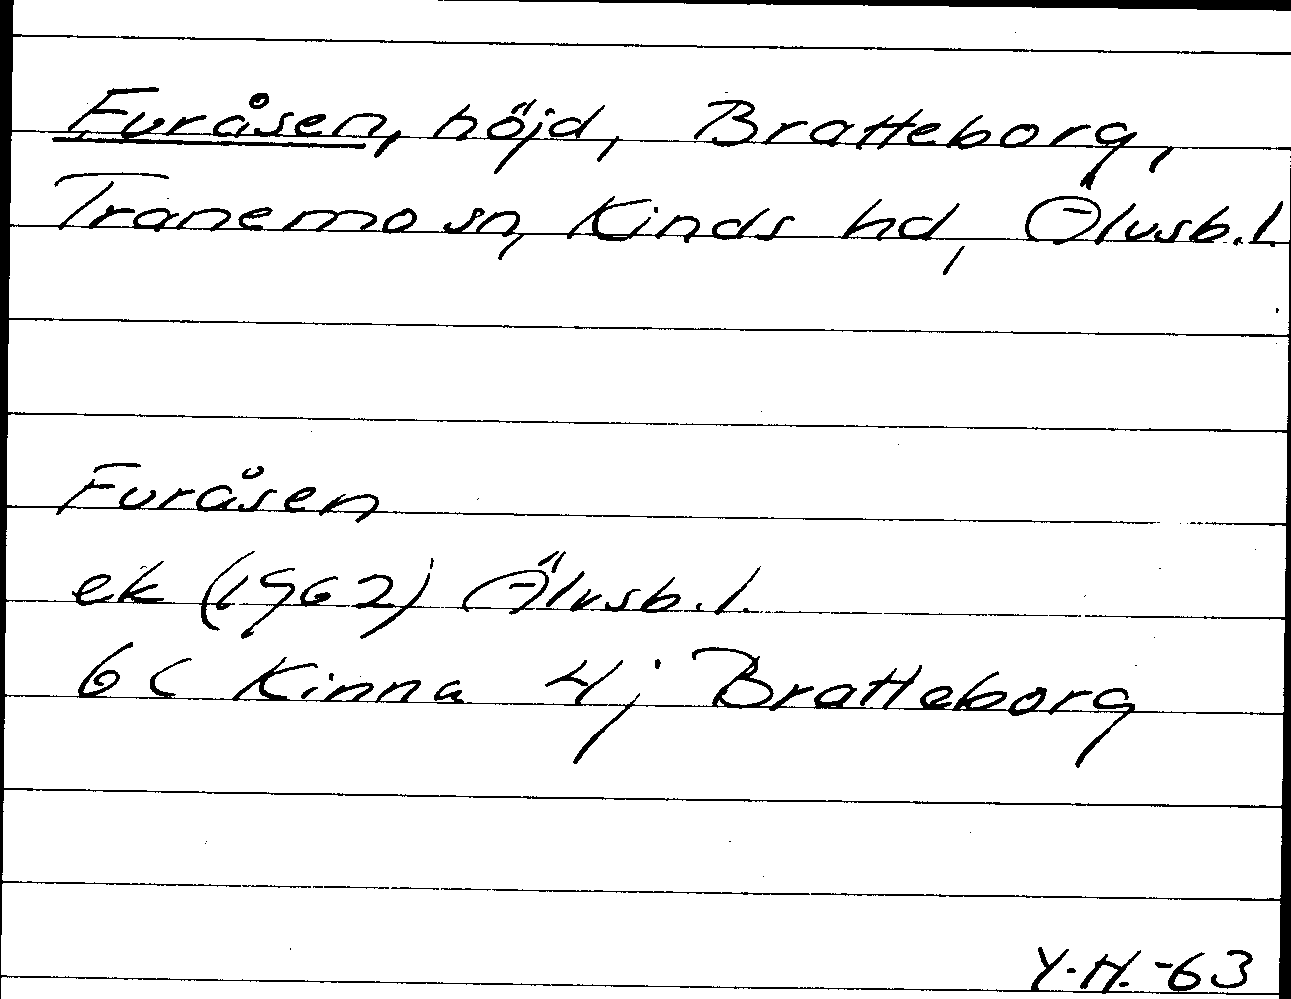 Furåsen, höjd, Bratteborg,
Tranemo sn, Kinds hd, Älvsb.l.
Furåsen
ek (1962) Älvsb.l.
6 C Kinna 4j Bratteborg
Y.H.-63